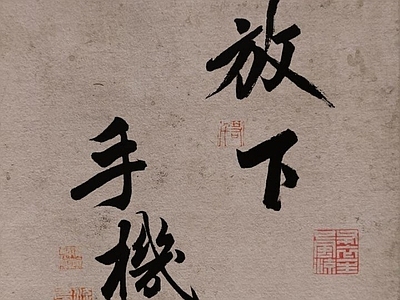 放下
手機